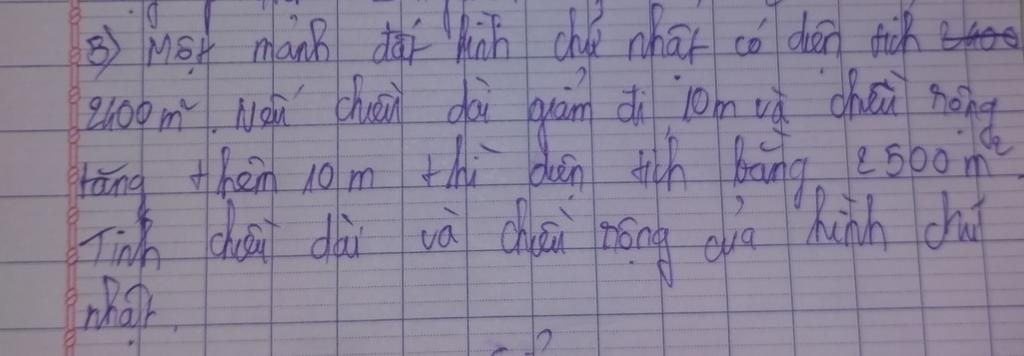 3) Một mảnh đất hình chữ nhất có diện tích 2400
2400 m². Nếu chiều dài giảm đi 10m và chiều rộng
tăng thêm 10 m thì diện tích bằng 2500 m²
Tính chiều dài và chiều rộng của hình chữ
nhất.